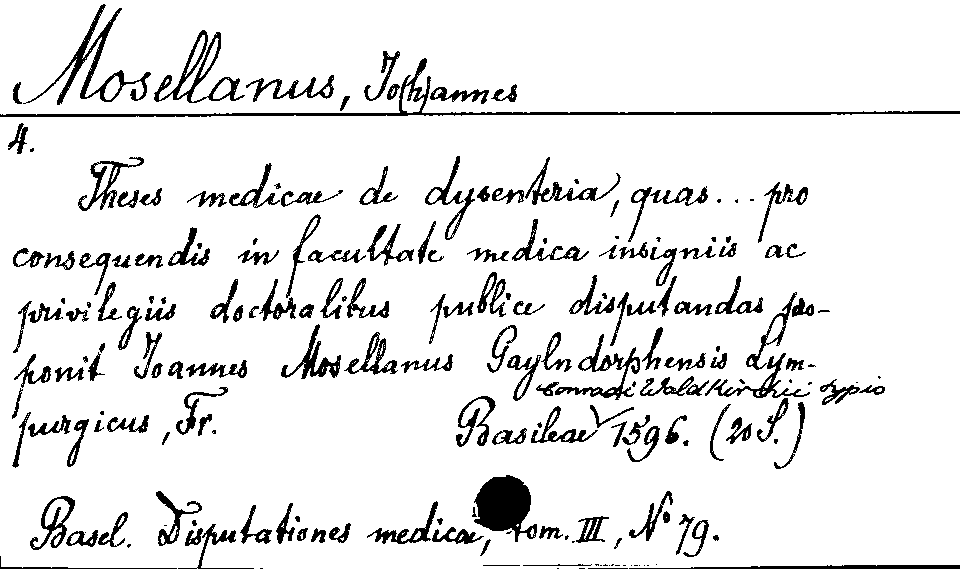 Mosellanus, Jo(h)annes
4.
Theses medicae de dysenteria, quas... pro
consequendis in facultate medica insigniis ac
privilegiis doctoralibus publice disputandas pro-
ponit Joannes Mosellanus Gaylndorphensis Lym-
purgicus, Fr.
Conradi Waldkirchii typis
Basileae 1596. (20 S.)
Basel. Disputationes medicae, tom. III, No 79.